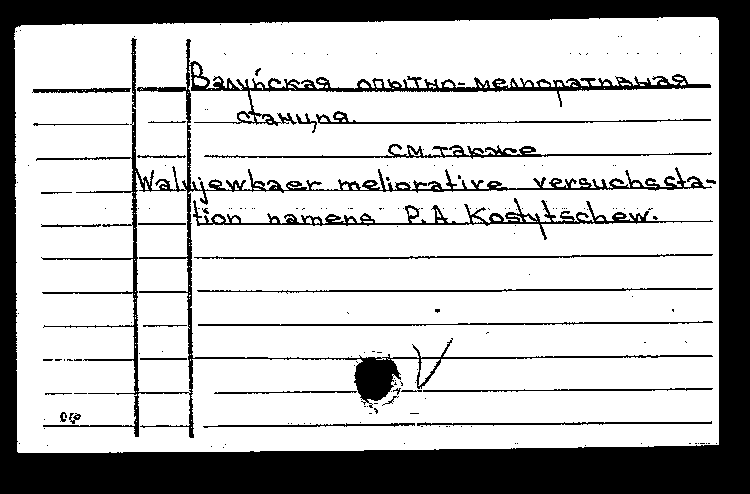 Валуйская опытно-мелиоративная
станция.
см. также
Walujewkaer meliorative versuchssta-
tion namens P.A. Kostytschew.